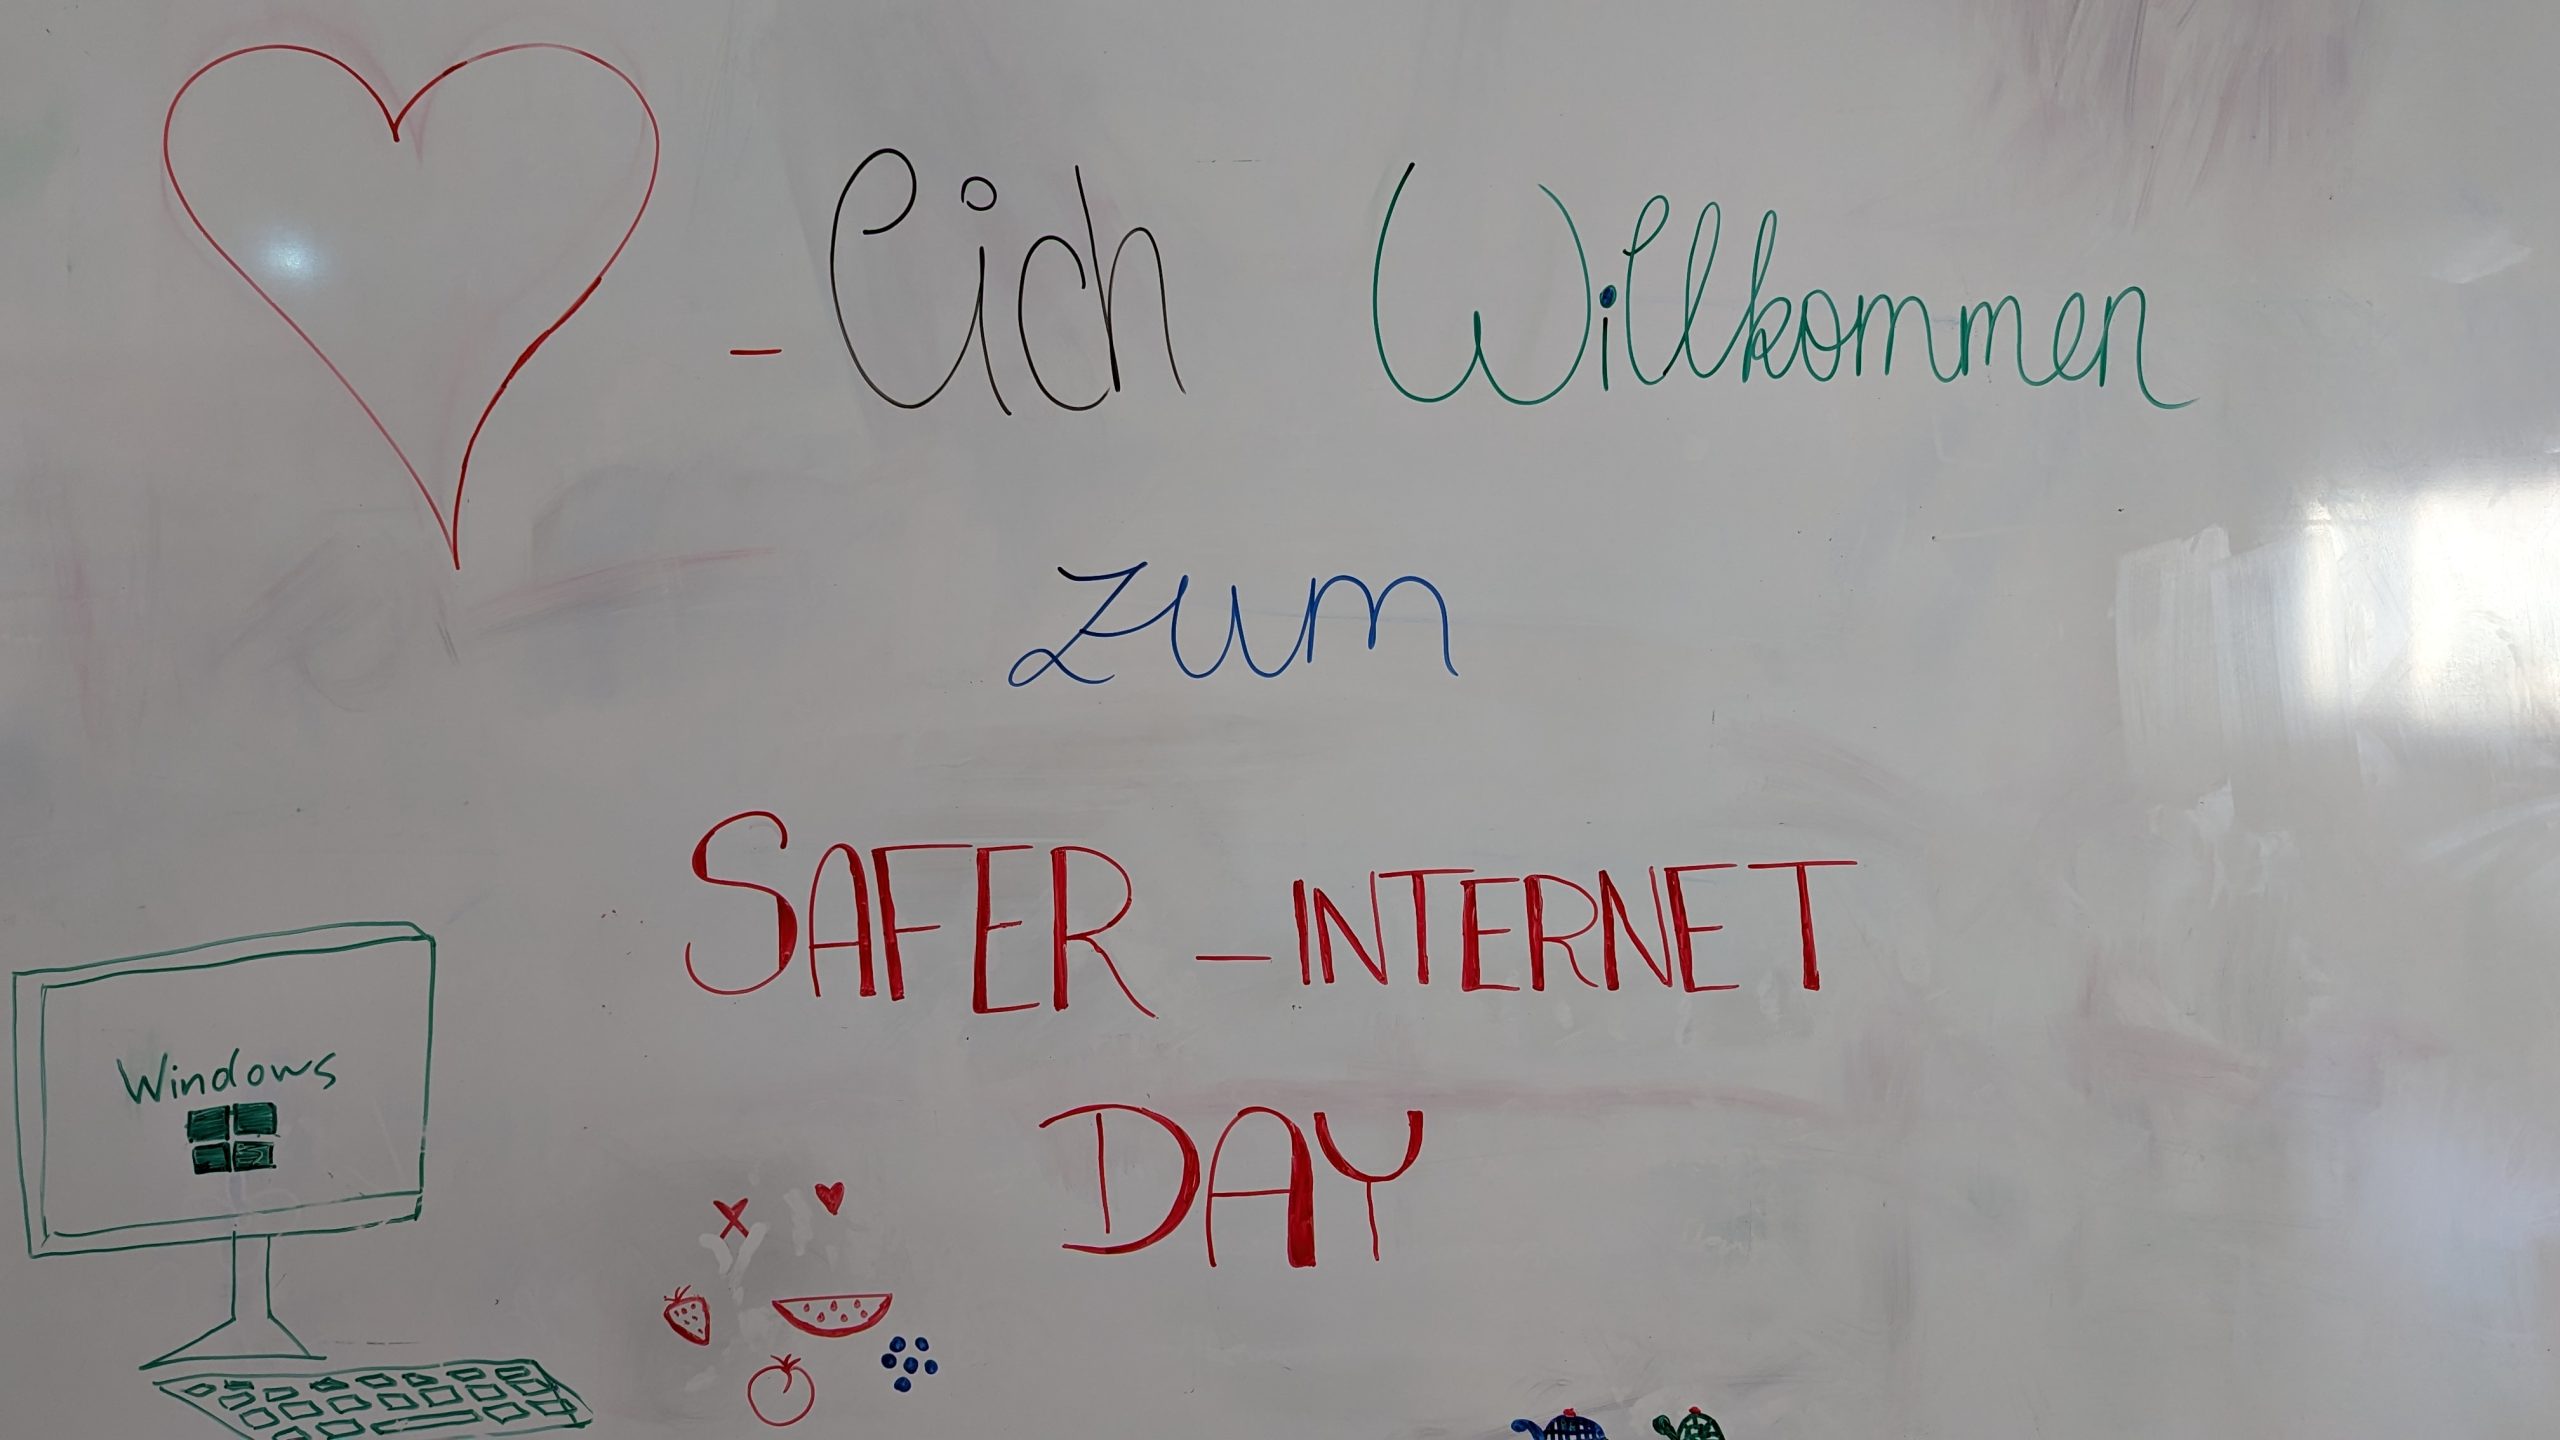 -lich Willkommen
zum
SAFER-INTERNET
DAY
Windows